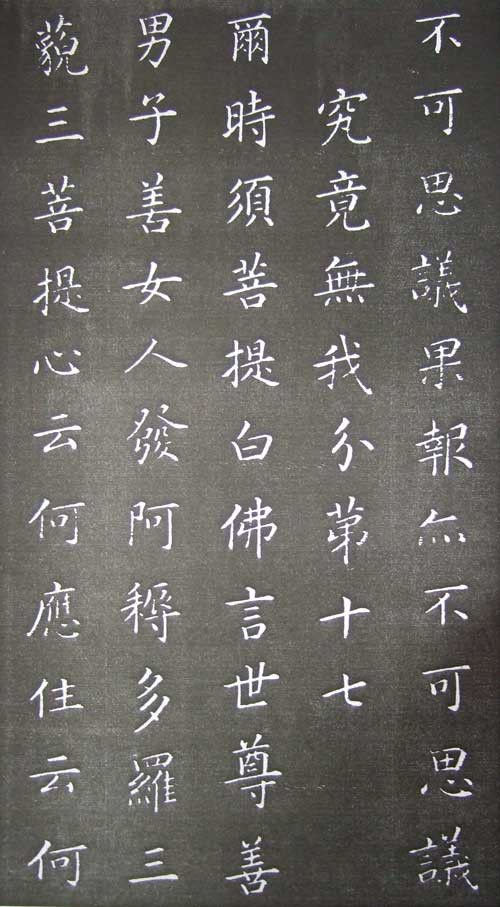 不可思議果報亦不可思議
究竟無我分第十七
爾時須菩提白佛言世尊善
男子善女人發阿耨多羅三
藐三菩提心云何應住云何